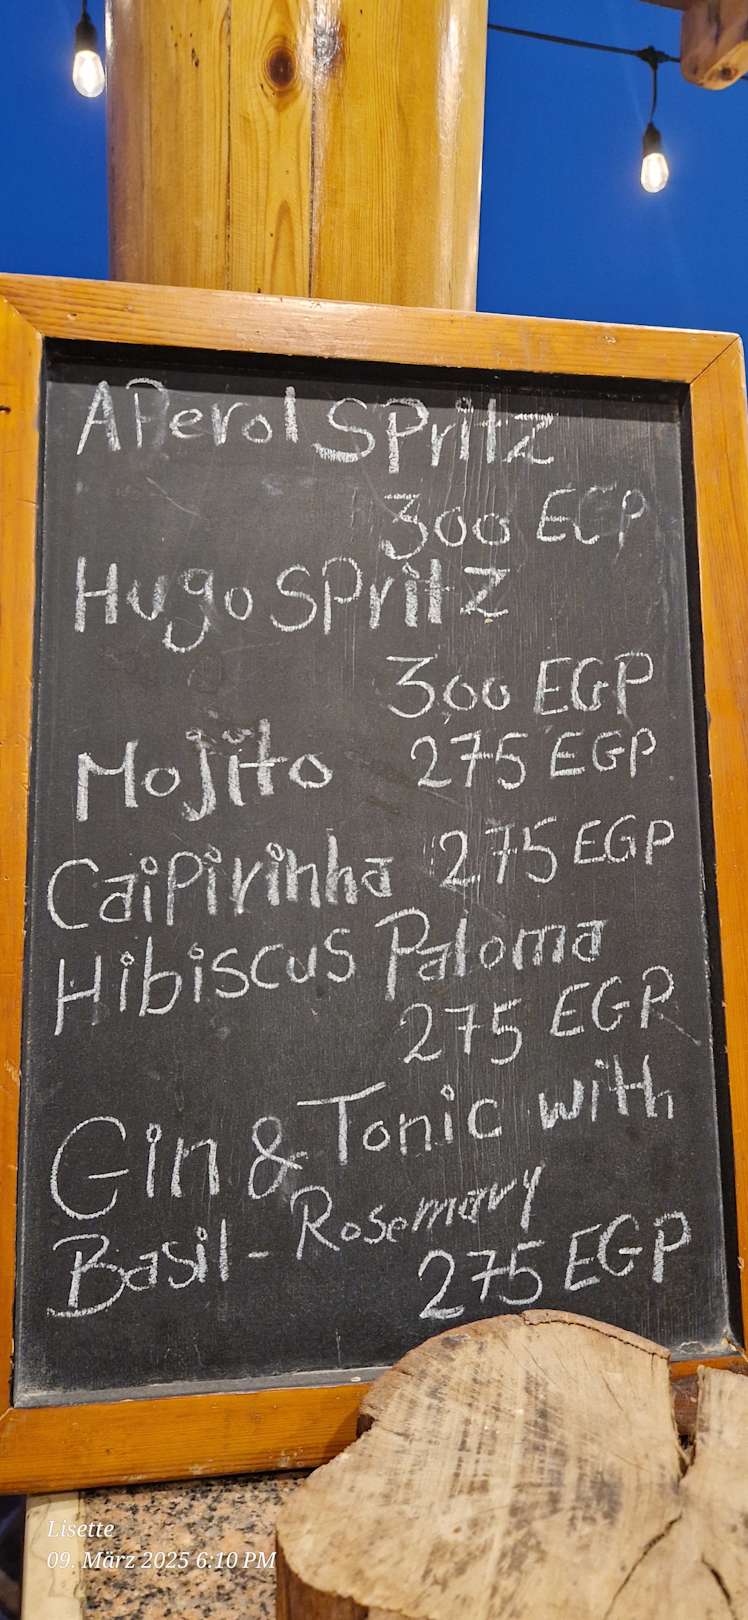 APerol SPritz
300 EGP
Hugo SPritz
300 EGP
Mojito 275 EGP
CaiPirinha 275 EGP
Hibiscus Paloma
275 EGP
Gin & Tonic with
Basil - Rosemary
275 EGP
Lisette
09. März 2025 6:10 PM